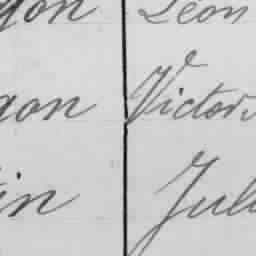 gon Léon
gon Victor
in Jul